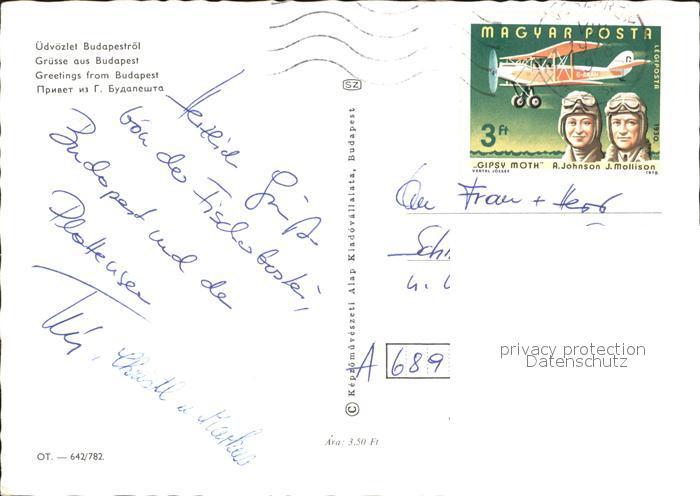 Üdvözlet Budapestről
Grüsse aus Budapest
Greetings from Budapest
Привет из Г. Будапешта
Herzlich
von der Fischerbastei,
Budapest und de
Plattensee
Christl u Markus
OT. — 642/782.
SZ
© Képzőművészeti Alap Kiadóvállalata, Budapest
Ára: 3,50 Ft
MAGYAR POSTA
LÉGIPOSTA
G-AAAH
1930
3 Ft
„GIPSY MOTH" A. Johnson J. Mollison
VERTEL JÓZSEF 1978
An Frau + Herr
Sch
A 689
privacy protection
Datenschutz